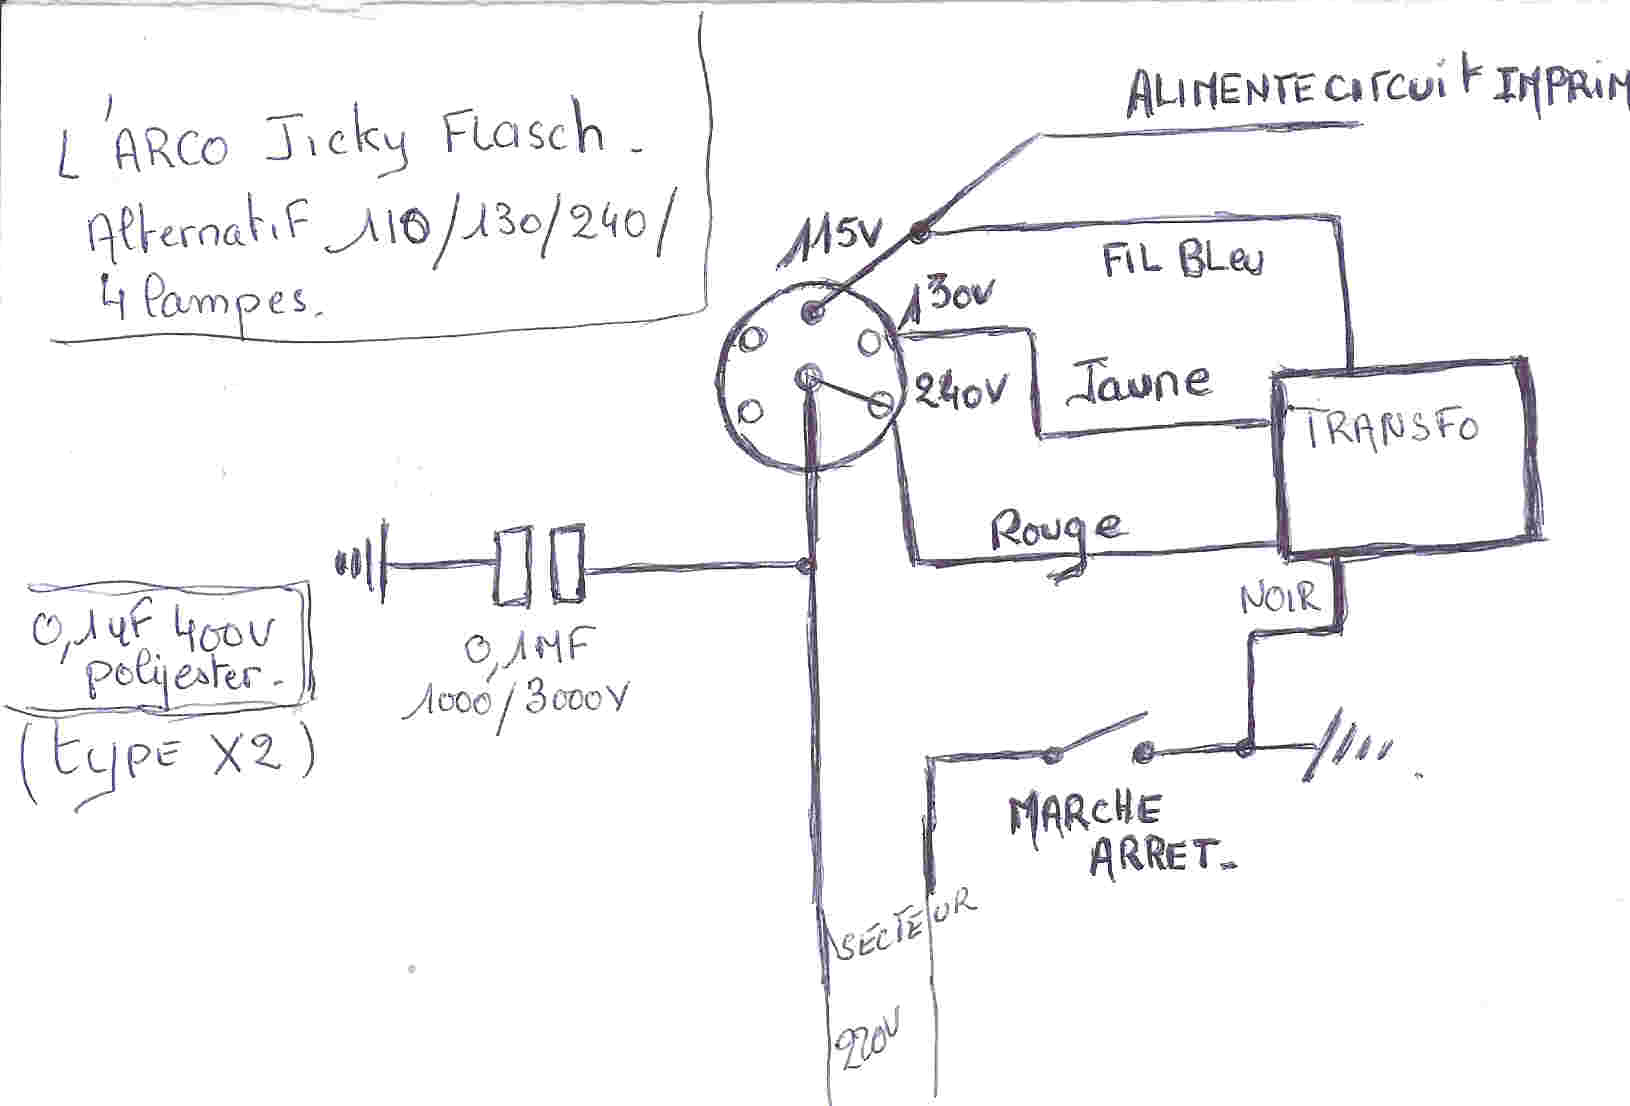 L'ARCO Jicky Flasch.
Alternatif 110/130/240/
4 lampes.
ALIMENTE circuit IMPRIM
115V
FIL BLeu
130V
240V
Jaune
TRANSFO
Rouge
NOIR
0,1MF
1000/3000V
0,1µF 400V
polyester.
(type X2)
MARCHE
ARRET.
SECTEUR
220V